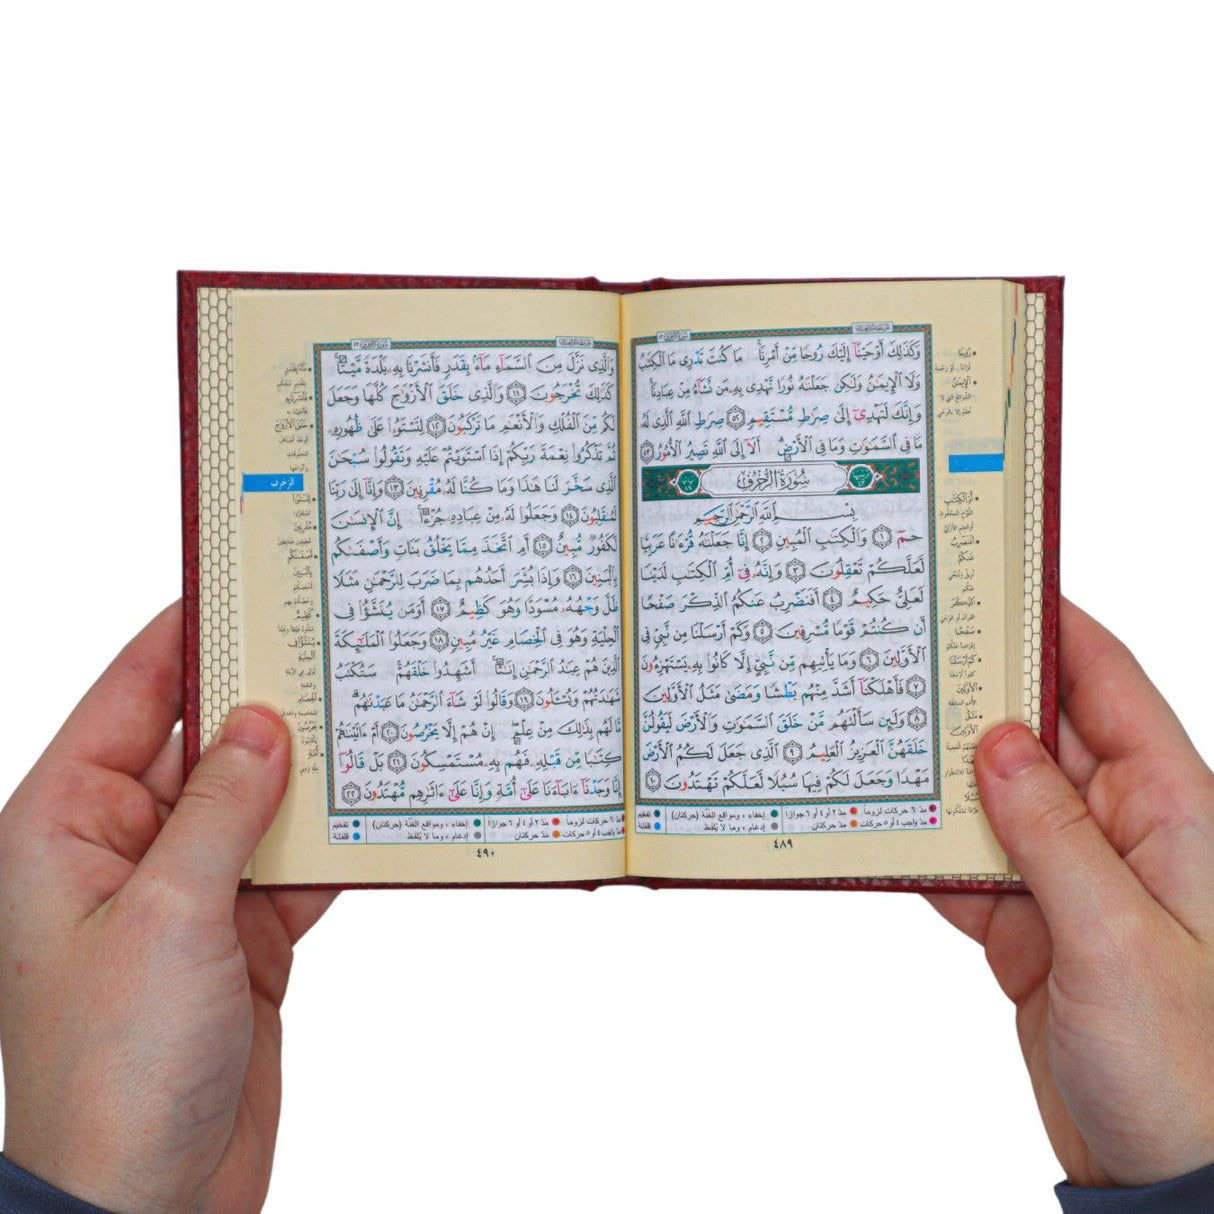 وَكَذَٰلِكَ أَوْحَيْنَآ إِلَيْكَ رُوحًا مِّنْ أَمْرِنَا ۚ مَا كُنتَ تَدْرِى مَا ٱلْكِتَٰبُ
وَلَا ٱلْإِيمَٰنُ وَلَٰكِن جَعَلْنَٰهُ نُورًا نَّهْدِى بِهِۦ مَن نَّشَآءُ مِنْ عِبَادِنَا ۚ
وَإِنَّكَ لَتَهْدِىٓ إِلَىٰ صِرَٰطٍ مُّسْتَقِيمٍ ٥٢ صِرَٰطِ ٱللَّهِ ٱلَّذِى لَهُۥ
مَا فِى ٱلسَّمَٰوَٰتِ وَمَا فِى ٱلْأَرْضِ ۗ أَلَآ إِلَى ٱللَّهِ تَصِيرُ ٱلْأُمُورُ ٥٣
سُورَةُ ٱلزُّخْرُفِ
بِسْمِ ٱللَّهِ ٱلرَّحْمَٰنِ ٱلرَّحِيمِ
حمٓ ١ وَٱلْكِتَٰبِ ٱلْمُبِينِ ٢ إِنَّا جَعَلْنَٰهُ قُرْءَٰنًا عَرَبِيًّا
لَّعَلَّكُمْ تَعْقِلُونَ ٣ وَإِنَّهُۥ فِىٓ أُمِّ ٱلْكِتَٰبِ لَدَيْنَا
لَعَلِىٌّ حَكِيمٌ ٤ أَفَنَضْرِبُ عَنكُمُ ٱلذِّكْرَ صَفْحًا
أَن كُنتُمْ قَوْمًا مُّسْرِفِينَ ٥ وَكَمْ أَرْسَلْنَا مِن نَّبِىٍّ فِى
ٱلْأَوَّلِينَ ٦ وَمَا يَأْتِيهِم مِّن نَّبِىٍّ إِلَّا كَانُوا۟ بِهِۦ يَسْتَهْزِءُونَ
٧ فَأَهْلَكْنَآ أَشَدَّ مِنْهُم بَطْشًا وَمَضَىٰ مَثَلُ ٱلْأَوَّلِينَ
٨ وَلَئِن سَأَلْتَهُم مَّنْ خَلَقَ ٱلسَّمَٰوَٰتِ وَٱلْأَرْضَ لَيَقُولُنَّ
خَلَقَهُنَّ ٱلْعَزِيزُ ٱلْعَلِيمُ ٩ ٱلَّذِى جَعَلَ لَكُمُ ٱلْأَرْضَ
مَهْدًا وَجَعَلَ لَكُمْ فِيهَا سُبُلًا لَّعَلَّكُمْ تَهْتَدُونَ ١٠
مدّ ٦ حركات لزوماً مدّ ٢ أو ٤ أو ٦ جوازاً إخفاء، ومواقع الغنّة (حركتان) تفخيم
مدّ واجب ٤ أو ٥ حركات مدّ حركتان إدغام، وما لا يُلفَظ قلقلة
٤٨٩
وَٱلَّذِى نَزَّلَ مِنَ ٱلسَّمَآءِ مَآءًۢ بِقَدَرٍ فَأَنشَرْنَا بِهِۦ بَلْدَةً مَّيْتًا ۚ
كَذَٰلِكَ تُخْرَجُونَ ١١ وَٱلَّذِى خَلَقَ ٱلْأَزْوَٰجَ كُلَّهَا وَجَعَلَ
لَكُم مِّنَ ٱلْفُلْكِ وَٱلْأَنْعَٰمِ مَا تَرْكَبُونَ ١٢ لِتَسْتَوُۥا۟ عَلَىٰ ظُهُورِهِۦ
ثُمَّ تَذْكُرُوا۟ نِعْمَةَ رَبِّكُمْ إِذَا ٱسْتَوَيْتُمْ عَلَيْهِ وَتَقُولُوا۟ سُبْحَٰنَ
ٱلَّذِى سَخَّرَ لَنَا هَٰذَا وَمَا كُنَّا لَهُۥ مُقْرِنِينَ ١٣ وَإِنَّآ إِلَىٰ رَبِّنَا
لَمُنقَلِبُونَ ١٤ وَجَعَلُوا۟ لَهُۥ مِنْ عِبَادِهِۦ جُزْءًا ۚ إِنَّ ٱلْإِنسَٰنَ
لَكَفُورٌ مُّبِينٌ ١٥ أَمِ ٱتَّخَذَ مِمَّا يَخْلُقُ بَنَاتٍ وَأَصْفَىٰكُم
بِٱلْبَنِينَ ١٦ وَإِذَا بُشِّرَ أَحَدُهُم بِمَا ضَرَبَ لِلرَّحْمَٰنِ مَثَلًا
ظَلَّ وَجْهُهُۥ مُسْوَدًّا وَهُوَ كَظِيمٌ ١٧ أَوَمَن يُنَشَّؤُا۟ فِى
ٱلْحِلْيَةِ وَهُوَ فِى ٱلْخِصَامِ غَيْرُ مُبِينٍ ١٨ وَجَعَلُوا۟ ٱلْمَلَٰٓئِكَةَ
ٱلَّذِينَ هُمْ عِبَٰدُ ٱلرَّحْمَٰنِ إِنَٰثًا ۚ أَشَهِدُوا۟ خَلْقَهُمْ ۚ سَتُكْتَبُ
شَهَٰدَتُهُمْ وَيُسْـَٔلُونَ ١٩ وَقَالُوا۟ لَوْ شَآءَ ٱلرَّحْمَٰنُ مَا عَبَدْنَٰهُم ۗ
مَّا لَهُم بِذَٰلِكَ مِنْ عِلْمٍ ۖ إِنْ هُمْ إِلَّا يَخْرُصُونَ ٢٠ أَمْ ءَاتَيْنَٰهُمْ
كِتَٰبًا مِّن قَبْلِهِۦ فَهُم بِهِۦ مُسْتَمْسِكُونَ ٢١ بَلْ قَالُوٓا۟
إِنَّا وَجَدْنَآ ءَابَآءَنَا عَلَىٰٓ أُمَّةٍ وَإِنَّا عَلَىٰٓ ءَاثَٰرِهِم مُّهْتَدُونَ ٢٢
مدّ ٦ حركات لزوماً مدّ ٢ أو ٤ أو ٦ جوازاً إخفاء، ومواقع الغنّة (حركتان) تفخيم
مدّ واجب ٤ أو ٥ حركات مدّ حركتان إدغام، وما لا يُلفَظ قلقلة
٤٩٠
الزّخرف